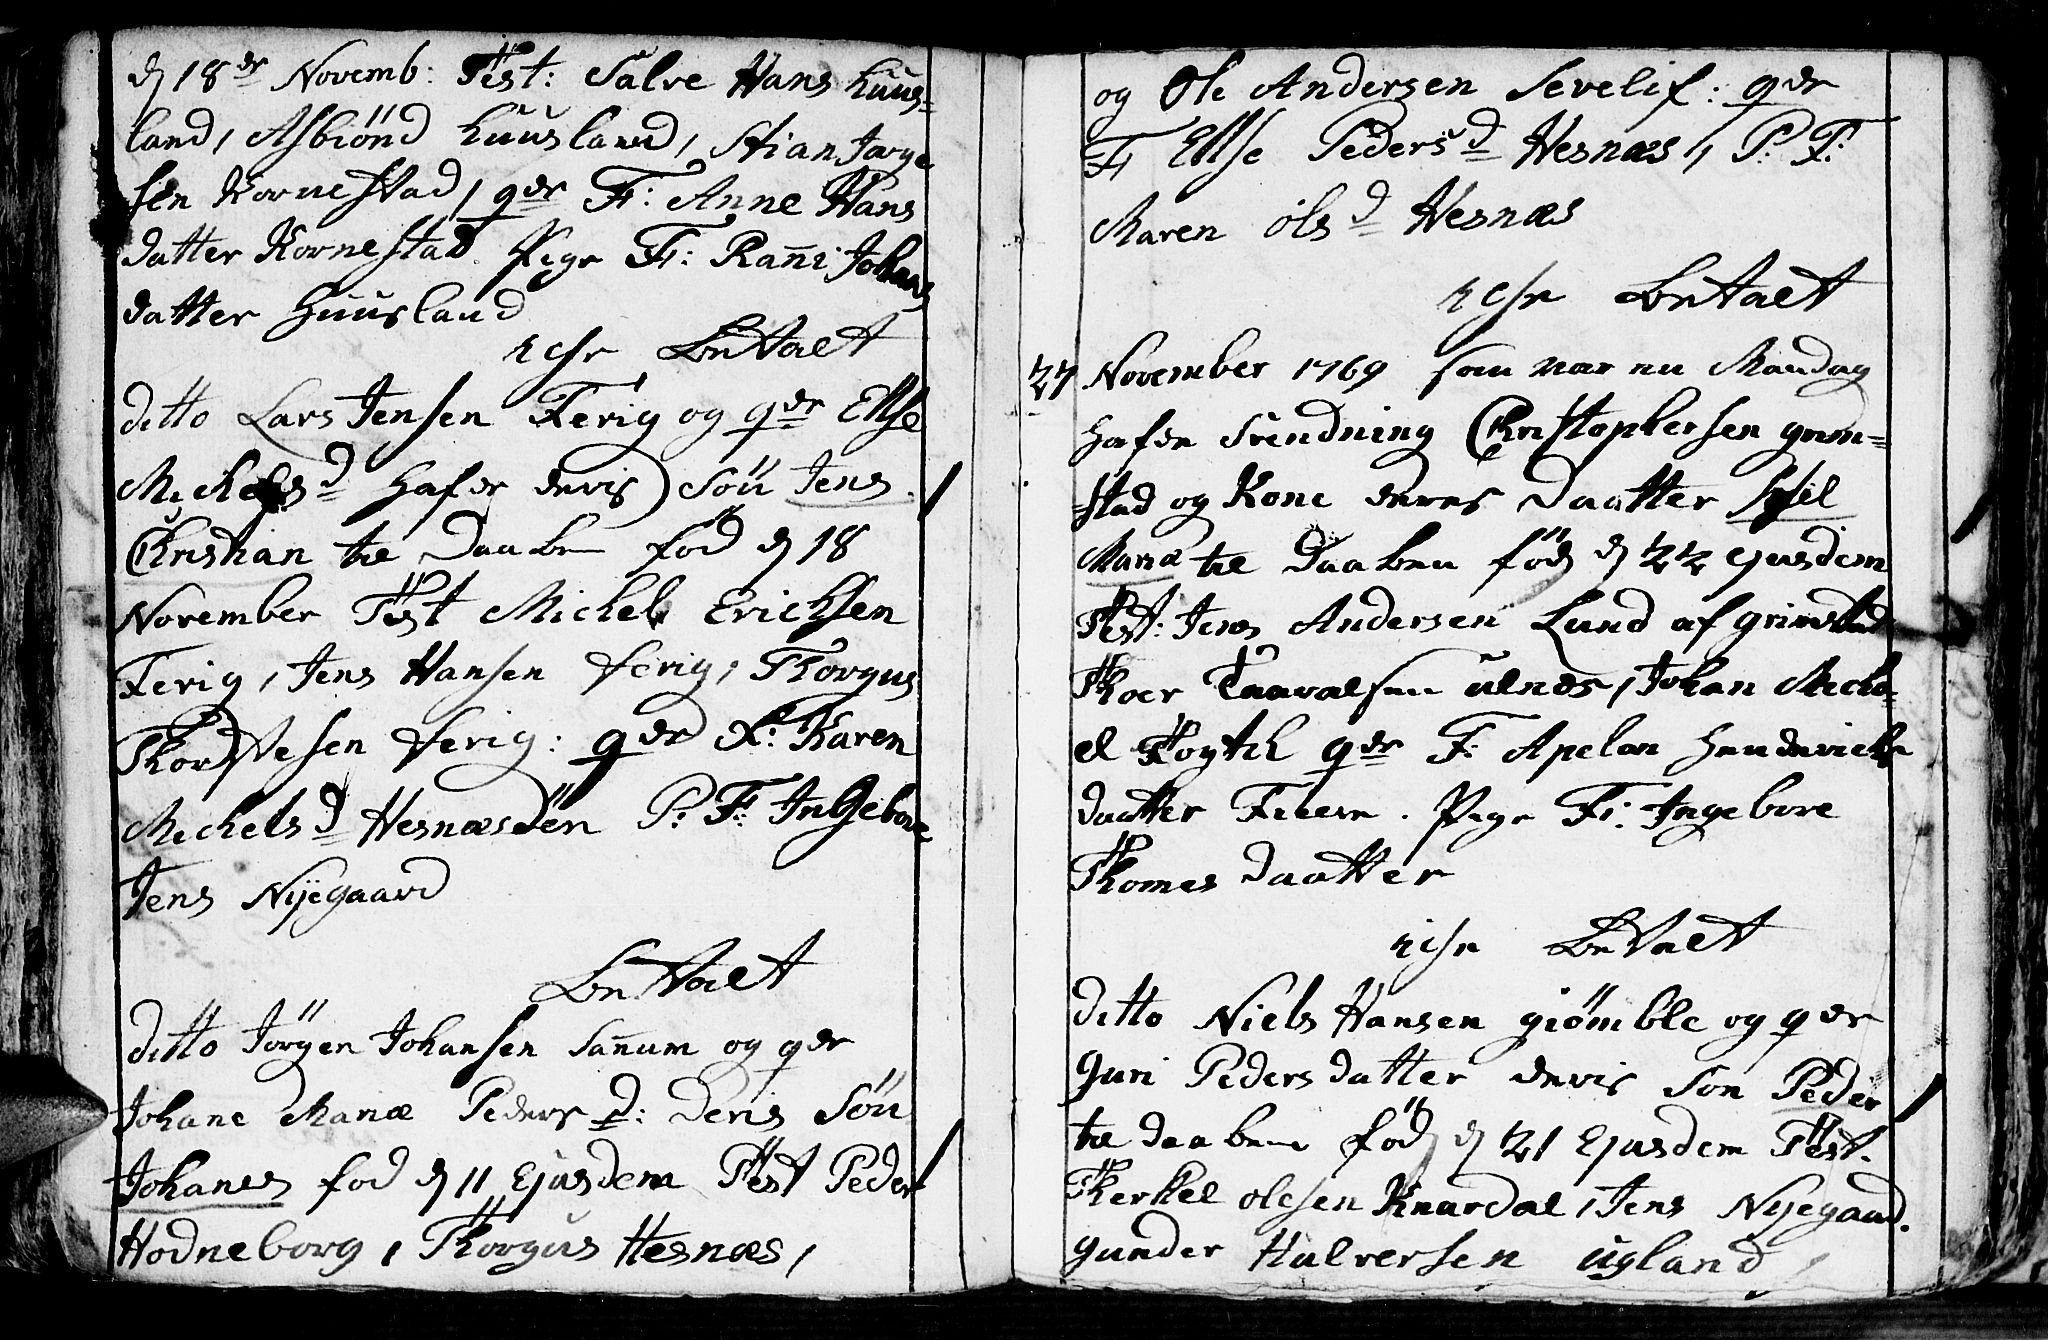 d 18de Novemb: Test: Salve Hans huus=
land, Asbiønd huusland, Stian Jørge
sen Kornestad, qde F: Anne Hans
datter Kornestad. Pige F: Rañi Johans
datter Huusland
Betalt
ditto Lars Jensen Ferig og qde Else
Michelsd hafde devis Søn Jens
Christian til Daaben fød d 18
November Test Michel Erichsen
Ferig, Jens Hansen Ferig, Thorgus
Thordvesen Ferig: qde F: Karen
Michelsd Hesnæsöen P: F: Ingebore
Jens Nyegaard
Betalt
ditto Jörgen Johansen Sañum og qde
Johane Maria Peders d: Deris Søn
Johanes fød d 11 Ejusdem Test Peder
Hodneborg, Thorgus Hesnæs,
og Ole Andersen Sevelif: qde
F Else Pedersd Hesnæs, P: F:
Maren Olsd Hesnæs
Betalt
27 November 1769 som var en Mandag
hafde Svendning Christophersen grim=
stad og Kone deres Daatter
Maria til Daaben fød d 22 ejusdem
Test: Jens Andersen Lund af grimstad
Thoer Taaralsen ulnes, Johan Micha=
el qde F: Apelon Hendrichs
daatter . Pige F: Ingebore
Thomes daatter
Betalt
ditto Niels Hansen giömble og qde
Guri Pedersdatter devis Søn Peder
til daaben fød d 21 Ejusdem Test.
Therkel olesen Knardal, Jens Nyegaard.
gunder Halversen ugland,